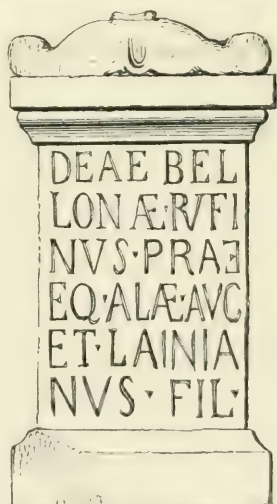 DEAE BEL
LONÆ·RVFI
NVS·PRAE
EQ·ALÆ·AVG
ET·LAINIA
NVS·FIL·